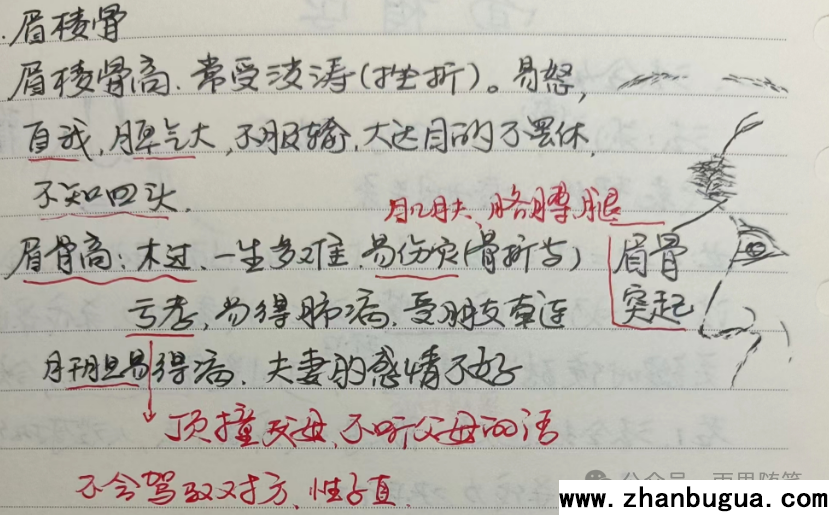 眉棱骨
眉棱骨高.常受波涛(挫折)。易怒,
自我,脾气大,不服输,大达目的不罢休,
不知回头.
肌肤、胳膊腿
眉骨高:木过、一生多难.易伤灾(骨折等)
眉骨
突起
亏孝,易得肺病.受朋友牵连
肝胆易得病.夫妻的感情不好
顶撞父母,不听父母的话
不会驾驭对方、性子直.
公众号 雨里随笔
www.zhanbugua.com